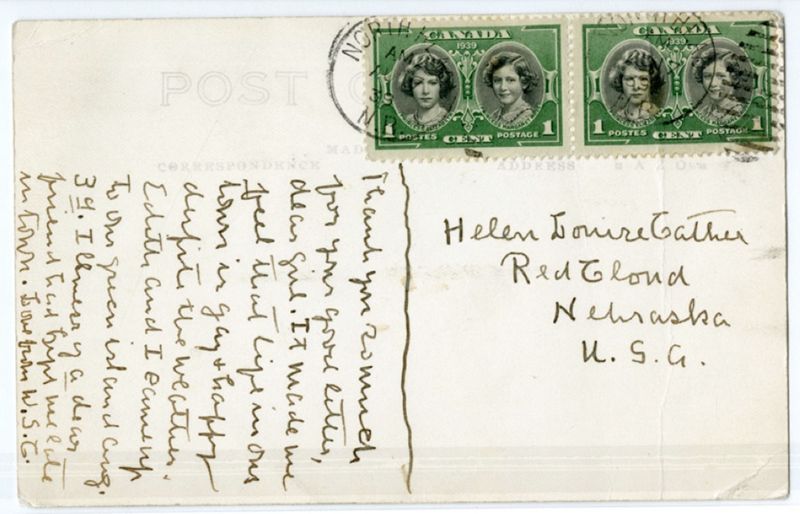 POST C
CORRESPONDENCE
ADDRESS
CANADA
1939
1 POSTES CENT POSTAGE 1
CANADA
1939
1 POSTES CENT POSTAGE 1
NORTH
Thank you so much
for your good letter,
dear girl. It made me
feel that life in our
town is gay & happy
despite the weather.
Edith and I came up
to our green island Aug.
3d. Illness of a dear
friend had kept me late
in town. Love from W.S.C.
Helen Louise Cather
Red Cloud
Nebraska
U.S.A.